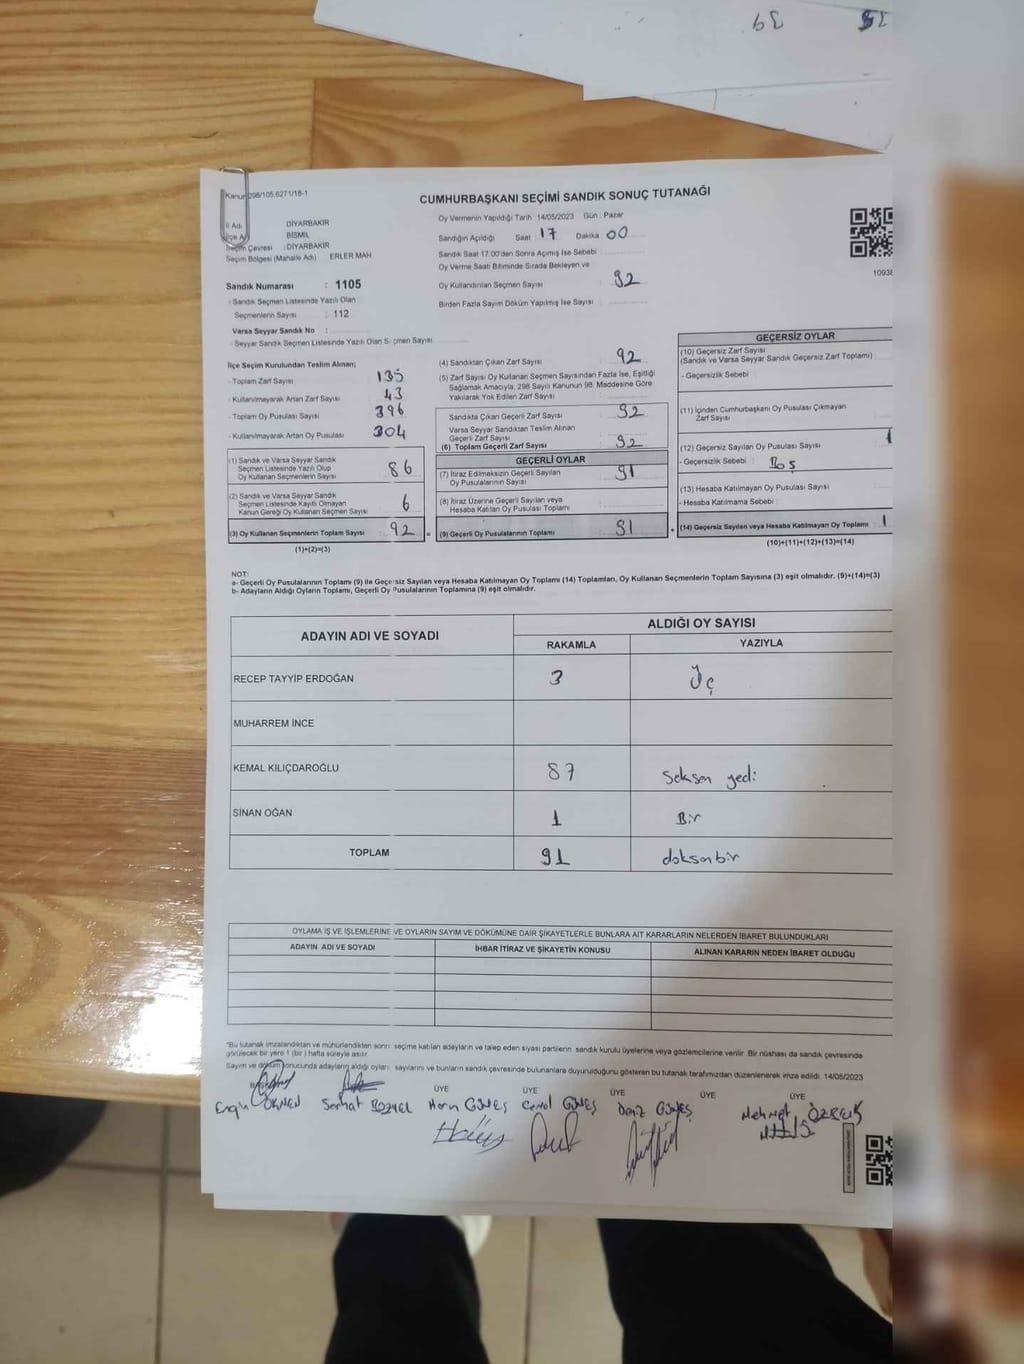 39
35
Kanun 298/105.6271/16-1
CUMHURBAŞKANI SEÇİMİ SANDIK SONUÇ TUTANAĞI
İl Adı DİYARBAKIR
İlçe A BİSMİL
Seçim Çevresi : DİYARBAKIR
Seçim Bölgesi (Mahalle Adı) ERLER MAH
Sandık Numarası : 1105
- Sandık Seçmen Listesinde Yazılı Olan
Seçmenlerin Sayısı : 112
Varsa Seyyar Sandık No :
- Seyyar Sandık Seçmen Listesinde Yazılı Olan Seçmen Sayısı
Oy Vermenin Yapıldığı Tarih 14/05/2023 Gün : Pazar
Sandığın Açıldığı Saat 17 Dakika 00
Sandık Saat 17:00'den Sonra Açılmış İse Sebebi
Oy Verme Saati Bitiminde Sırada Bekleyen ve
Oy Kullandırılan Seçmen Sayısı : 92
Birden Fazla Sayım Döküm Yapılmış İse Sayısı
1093
İlçe Seçim Kurulundan Teslim Alınan;
- Toplam Zarf Sayısı 135
- Kullanılmayarak Artan Zarf Sayısı 43
- Toplam Oy Pusulası Sayısı 396
- Kullanılmayarak Artan Oy Pusulası 304
(1) Sandık ve Varsa Seyyar Sandık
Seçmen Listesinde Yazılı Olup
Oy Kullanan Seçmenlerin Sayısı : 86
(2) Sandık ve Varsa Seyyar Sandık
Seçmen Listesinde Kayıtlı Olmayan
Kanun Gereği Oy Kullanan Seçmen Sayısı 6
(3) Oy Kullanan Seçmenlerin Toplam Sayısı : 92
(1)+(2)=(3)
(4) Sandıktan Çıkan Zarf Sayısı : 92
(5) Zarf Sayısı Oy Kullanan Seçmen Sayısından Fazla İse, Eşitliği
Sağlamak Amacıyla, 298 Sayılı Kanunun 98. Maddesine Göre
Yakılarak Yok Edilen Zarf Sayısı
Sandıkta Çıkan Geçerli Zarf Sayısı : 92
Varsa Seyyar Sandıktan Teslim Alınan
Geçerli Zarf Sayısı
(6) Toplam Geçerli Zarf Sayısı : 92
GEÇERLİ OYLAR
(7) İtiraz Edilmeksizin Geçerli Sayılan
Oy Pusulasının Sayısı : 91
(8) İtiraz Üzerine Geçerli Sayılan veya
Hesaba Katılan Oy Pusulası Toplamı
(9) Geçerli Oy Pusulalarının Toplamı : 91
GEÇERSİZ OYLAR
(10) Geçersiz Zarf Sayısı
(Sandık ve Varsa Seyyar Sandık Geçersiz Zarf Toplamı)
- Geçersizlik Sebebi
(11) İçinden Cumhurbaşkanı Oy Pusulası Çıkmayan
Zarf Sayısı
(12) Geçersiz Sayılan Oy Pusulası Sayısı 1
- Geçersizlik Sebebi : Boş
(13) Hesaba Katılmayan Oy Pusulası Sayısı
- Hesaba Katılmama Sebebi
(14) Geçersiz Sayılan veya Hesaba Katılmayan Oy Toplamı : 1
(10)+(11)+(12)+(13)=(14)
NOT:
a- Geçerli Oy Pusulalarının Toplamı (9) ile Geçersiz Sayılan veya Hesaba Katılmayan Oy Toplamı (14) Toplamları, Oy Kullanan Seçmenlerin Toplam Sayısına (3) eşit olmalıdır. (9)+(14)=(3)
b- Adayların Aldığı Oyların Toplamı, Geçerli Oy Pusulalarının Toplamına (9) eşit olmalıdır.
ADAYIN ADI VE SOYADI
ALDIĞI OY SAYISI
RAKAMLA YAZIYLA
RECEP TAYYİP ERDOĞAN 3 Üç
MUHARREM İNCE
KEMAL KILIÇDAROĞLU 87 Seksen yedi
SİNAN OĞAN 1 Bir
TOPLAM 91 doksan bir
OYLAMA İŞ VE İŞLEMLERİNE VE OYLARIN SAYIM VE DÖKÜMÜNE DAİR ŞİKAYETLERLE BUNLARA AİT KARARLARIN NELERDEN İBARET BULUNDUKLARI
ADAYIN ADI VE SOYADI İHBAR İTİRAZ VE ŞİKAYETİN KONUSU ALINAN KARARIN NEDEN İBARET OLDUĞU
"Bu tutanak imzalandıktan ve mühürlendikten sonra seçime katılan adayların ve talep eden siyasi partilerin sandık kurulu üyelerine veya gözlemcilerine verilir. Bir nüshası da sandık çevresinde
görülecek bir yere 1 (bir) hafta süreyle asılır.
Sayım ve döküm sonucunda adayların aldığı oyların sayılarını ve bunların sandık çevresinde bulunanlara duyurulduğunu gösteren bu tutanak tarafımızdan düzenlenerek imza edildi. 14/05/2023
ÜYE ÜYE ÜYE ÜYE ÜYE
Engin ÖKMEN Serhat BOZYEL Harun GÜNEŞ Cemal GÜNEŞ Deniz GÜNEŞ Mehmet ÖZREİS